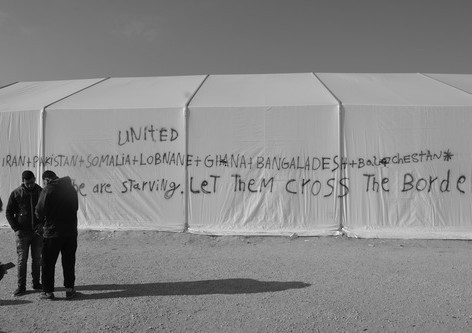 UNITED
IRAN+PAKISTAN+SOMALIA+LOBNANE+GHANA+BANGALADESH+BaLochESTAN*
are starving. LeT Them Cross The Borde